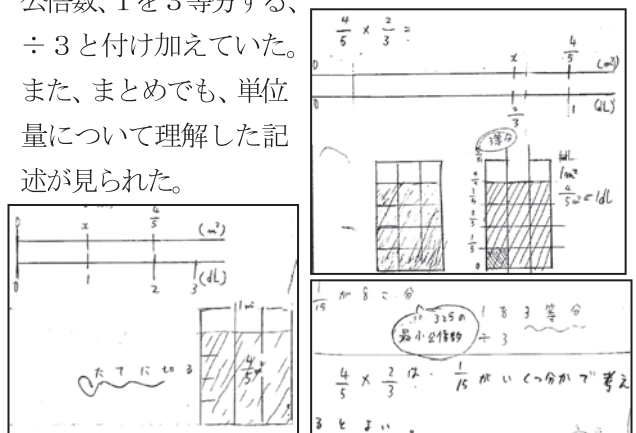 公倍数、１を３等分する、
÷３と付け加えていた。
また、まとめでも、単位
量について理解した記
述が見られた。
4/5 × 2/3 =
0 x 4/5 (m²)
0 2/3 1 (dL)
3等分
4/5
3/5
2/5
1/5
0
1m²
4/5 m² ← 1dL
0 x 4/5 (m²)
1 2 3 (dL)
1m²
4/5
たてに切る
1/15 が 8こ分
3と5の
最小公倍数
1を3等分
÷3
4/5 × 2/3 は 1/15 がいくつ分かで考え
るとよい。